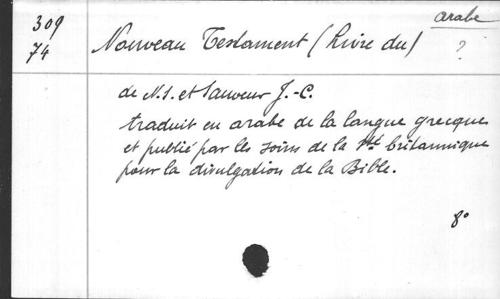 309
74
arabe
Nouveau Testament (Livre du) ?
de N.S. et Sauveur J.-C.
traduit en arabe de la langue grecque
et publié par les soins de la Sté britannique
pour la divulgation de la Bible.
8°